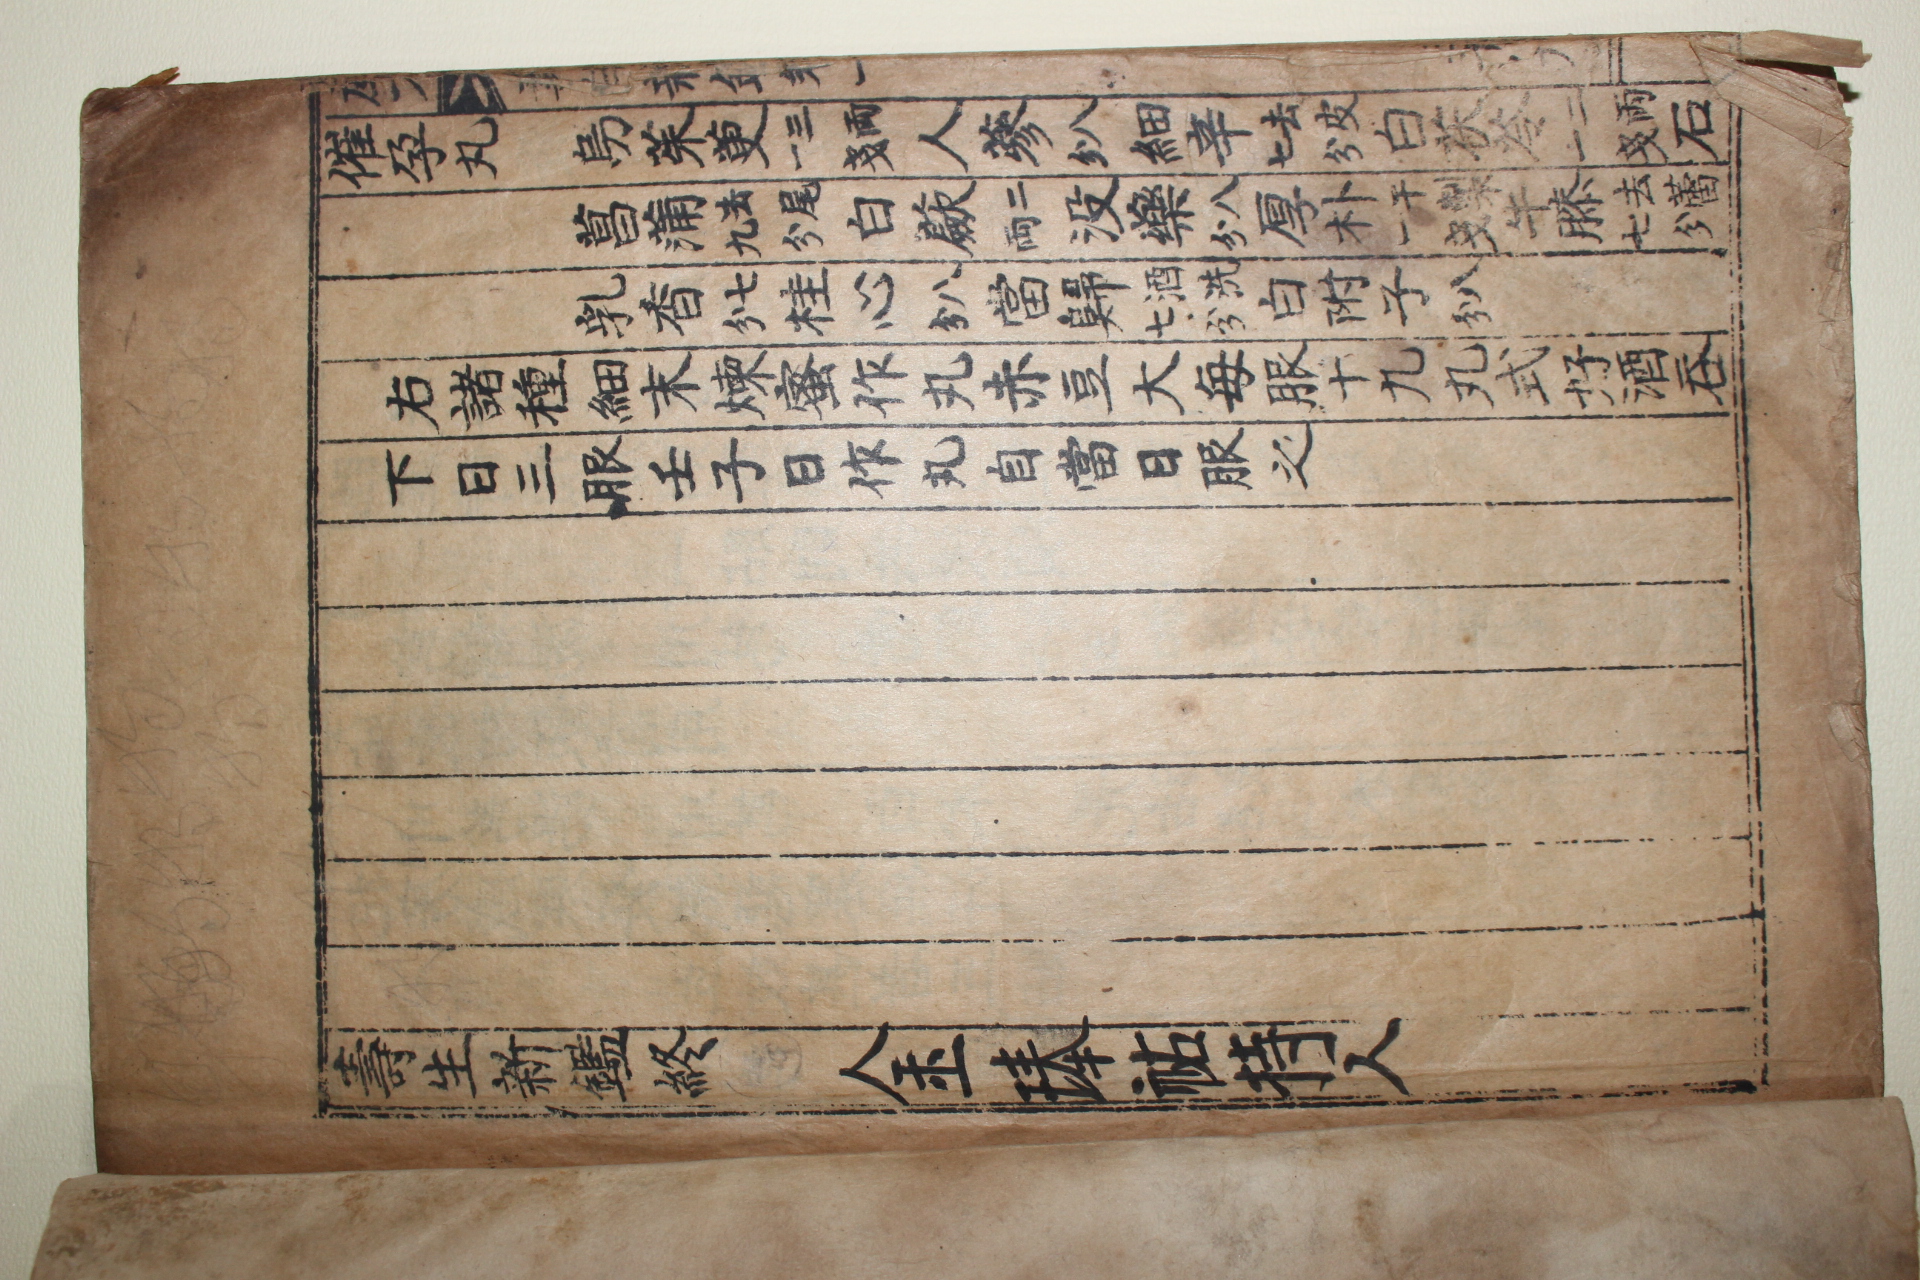 催孕丸 烏茱萸三兩一戔人蔘八分細辛去皮七分白茯苓二兩一戔石
菖蒲去尾九分白蘞二兩没藥八分厚朴干製一戔牛膝去七分
乳香七分桂心八分當歸酒洗七分白附子八分
右諸種細末煉蜜作丸赤豆大每服十九丸式好酒呑
下日三服壬子日作丸自當日服之
壽生新鑑終 金琫祜持人